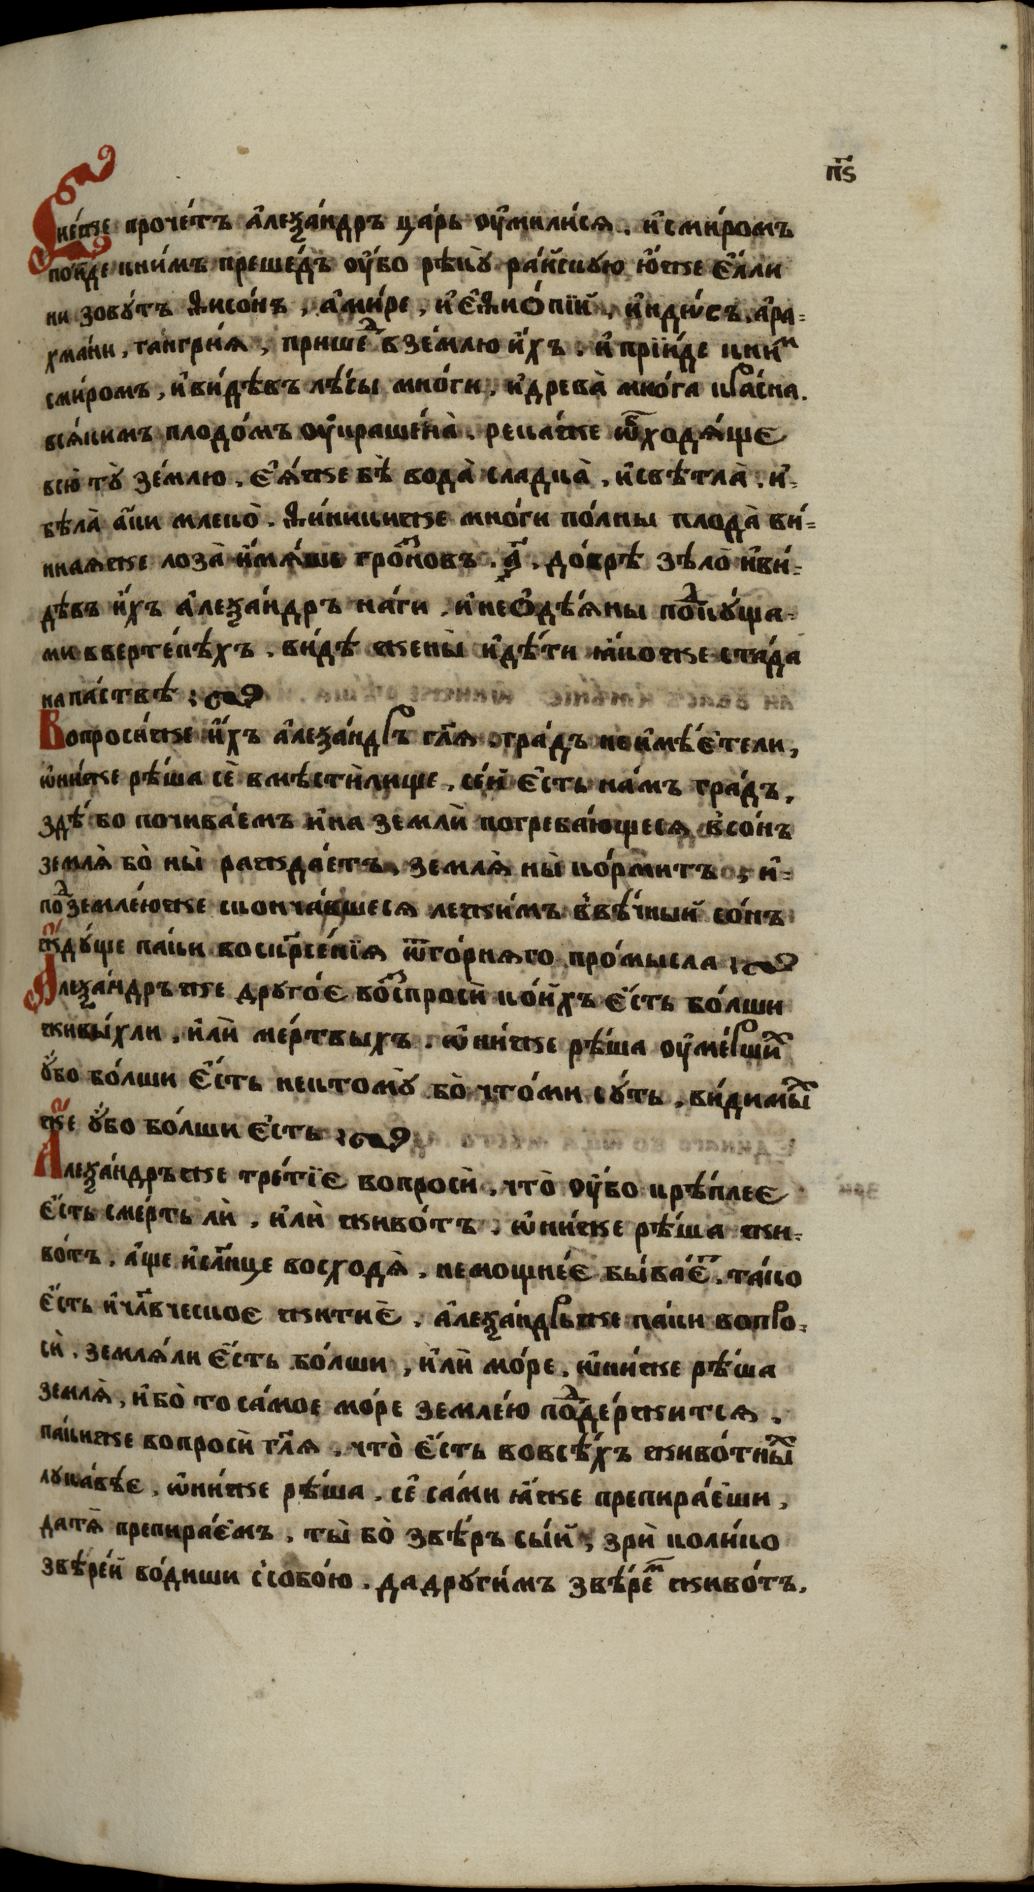 п҃ѕ
Сиѐже проче́тъ а҆леѯа́ндръ ца́рь оу҆мили́сѧ. и҆сми́ромъ
пои́де книмъ преше́дъ оу҆́бо рѣкꙋ̀ ра́йскꙋю ю҆́же є҆́лли
ни зовꙋ́тъ ѳисо́нъ, а҆ми́ре, и҆є҆ѳио́пїи, и҆ндѡ́съ. а҆ра=
хма́ни, тангри́ѧ, прише́д вземлю и҆́хъ. и҆ прїи́де кни́м
сми́ромъ, и҆ви́дѣвъ лѣ́сы мно́ги, и҆древа̀ мно́га кра́сна.
всѧ́кимъ плодо́мъ оу҆краше́на̀. река́же ѿходѧ́ще
всю̀ тꙋ̀ зе́млю. є҆ѧ́же бѣ̀ вода̀ сладка̀, и҆свѣтла̀. и҆=
бѣла̀ а҆́ки млеко̀. ѳи́никиже мно́ги по́лны плода̀ ви́=
ннаѧже лоза̀ и҆мѧ́ше гро́зновъ. ҂а҃. до́брѣ зѣло̀ и҆ви́=
дѣвъ и҆́хъ а҆леѯа́ндръ на́ги, и҆неѡ҆дѣ́ѧны под кꙋ́ща=
ми ввертепѣхъ. ви́дѣ жены̀ и҆дѣ́ти ꙗ҆́коже ста́да
напа́ствѣ :
Вопроси́же и҆́хъ а҆леѯа́ндръ гл҃ѧ. гра́дъ неи҆мѣ́єтели,
ѡ҆ни́же рѣ́ша сѐ вмѣсти́лище. се́й є҆́сть на́мъ гра́дъ.
здѣ́ бо почива́емъ и҆на землѝ погреба́ющесѧ всо́нъ
землѧ̀ бо̀ ны̀ ражда́етъ, землѧ̀ ны̀ ко́рмитъ ; и҆=
под земле́юже сконча́вшесѧ лежи́мъ ввѣ́чный со́нъ
ждꙋ́ще па́ки воскр҃се́нїѧ ѿго́рнѧго про́мысла :
Алеѯа́ндръже дрꙋго́є возпросѝ ко́ихъ є҆́сть бо́лши
живы́хли, и҆лѝ ме́ртвыхъ. ѡ҆ни́же рѣ́ша оу҆ме́рших
оу҆́бо бо́лши є҆́сть нектомꙋ̀ бо̀ что́ми сꙋ́ть. ви́димых
же оу҆́бо бо́лши є҆́сть :
Алеѯа́ндръже тре́тїє вопросѝ. что̀ оу҆́бо крѣ́плеє
є҆́сть сме́рть лѝ, и҆лѝ живо́тъ. ѡ҆ни́же рѣ́ша жи=
во́тъ. а҆́ще и҆сл҃нце восходѧ̀, немощне́є быва́ет. та́ко
є҆́сть и҆чл҃вческоє житѝє. а҆леѯа́ндрьже па́ки вопро=
сѝ. землѧ́ли є҆́сть бо́лши, и҆лѝ мо́ре. ѡ҆ни́же рѣ́ша
землѧ̀, и҆бо̀ то са́мое мо́ре земле́ю подде́ржитсѧ.
па́киже вопросѝ гл҃ѧ. что̀ є҆́сть вовсѣ́хъ живо́тных
лꙋка́вѣє. ѡ҆ни́же рѣ́ша. се̑ са́ми ꙗ҆́же препира́еши.
да тѧ̀ препира́ємъ. ты̀ бо̀ звѣ́ръ сы́й; зрѝ коли́ко
звѣре́й во́диши ссобо́ю. да дрꙋги́мъ звѣ́рем живо́тъ.